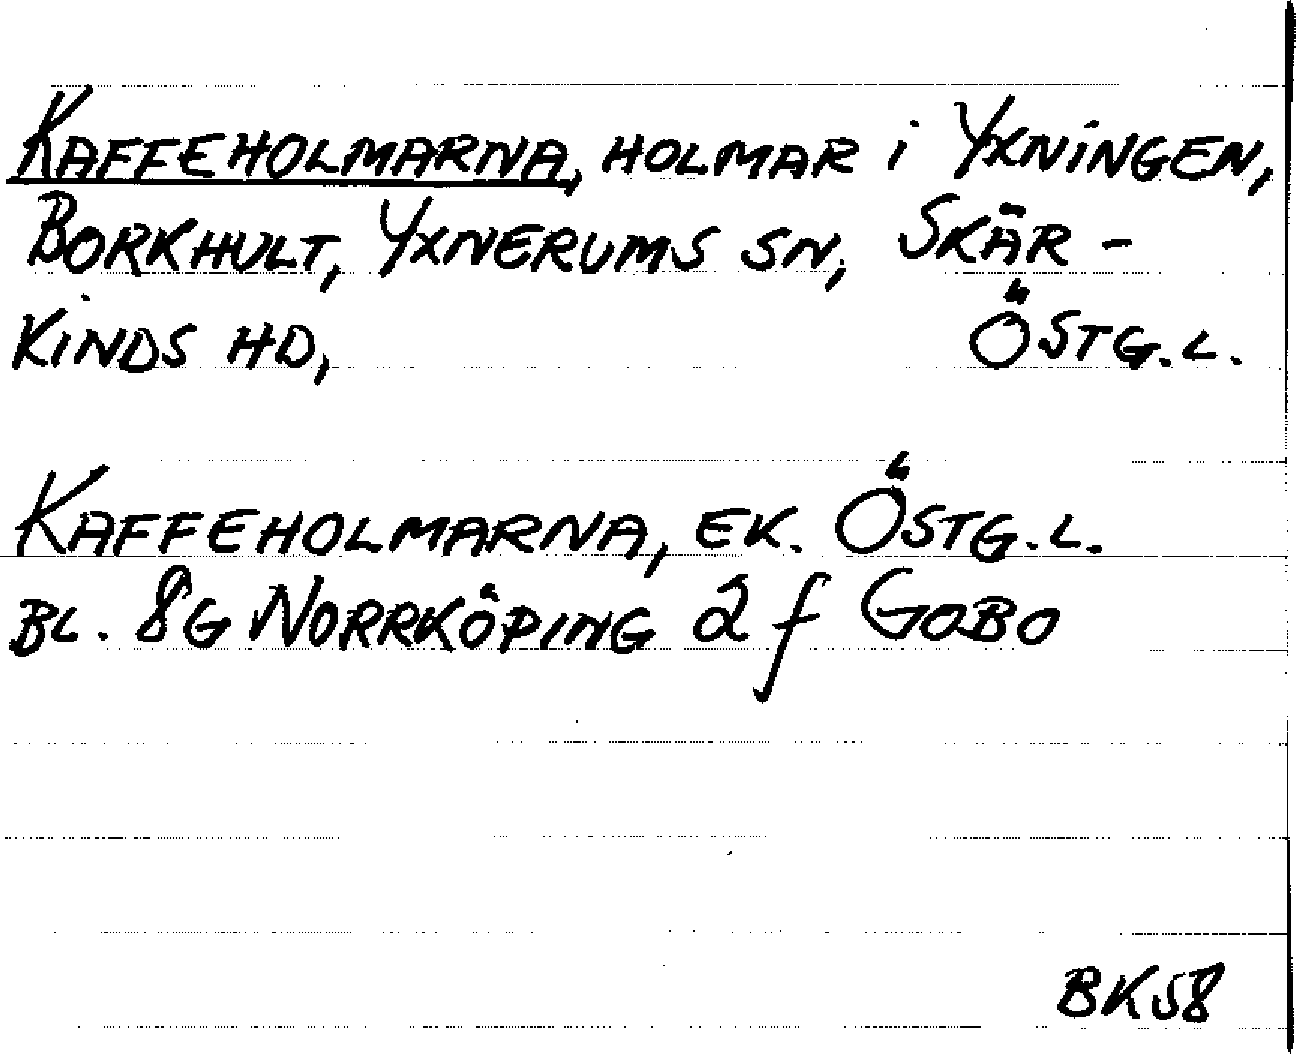 KAFFEHOLMARNA, HOLMAR i YXNiNGEN,
BORKHULT, YXNERUMS SN, SKÄR-
KiNDS HD, ÖSTG.L.
KAFFEHOLMARNA, EK. ÖSTG.L.
BL. 8G NORRKÖPING 2f GOBO
BK58